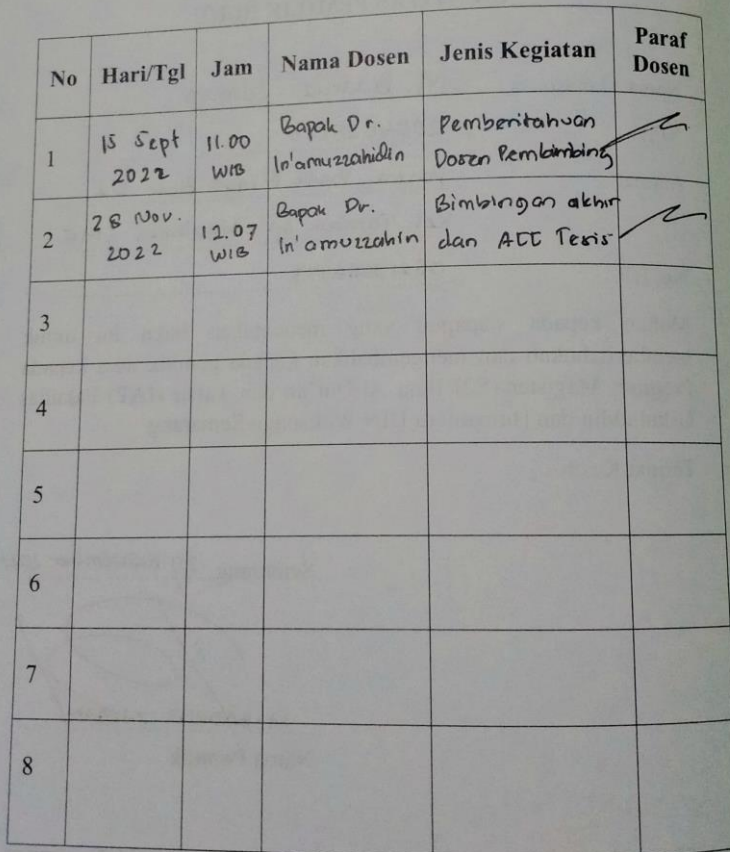 No Hari/Tgl Jam Nama Dosen Jenis Kegiatan Paraf Dosen
1 15 Sept 2022 11.00 WIB Bapak Dr. In'amuzzahidin Pemberitahuan Dosen Pembimbing
2 28 Nov. 2022 12.07 WIB Bapak Dr. In'amuzzahin Bimbingan akhir dan ACC Tesis
3
4
5
6
7
8